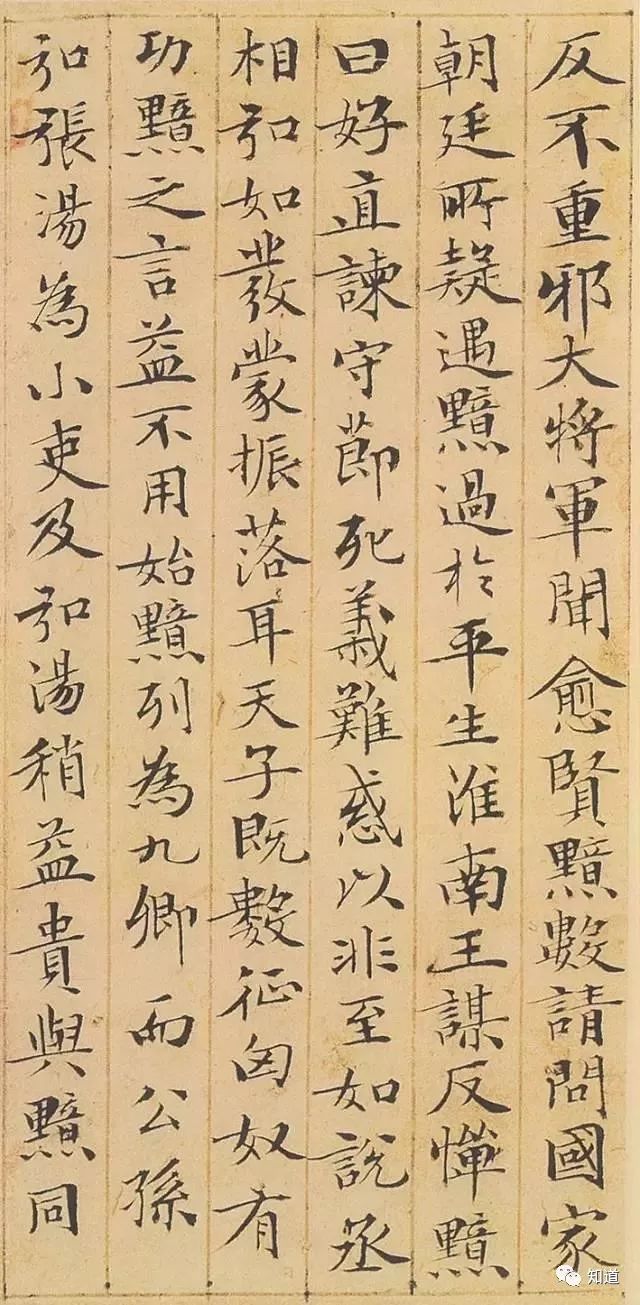 反不重邪大將軍聞愈賢黯數請問國家
朝廷所疑遇黯過於平生淮南王謀反憚黯
曰好直諫守節死義難惑以非至如說丞
相弘如發蒙振落耳天子既數征匈奴有
功黯之言益不用始黯列為九卿而公孫
弘張湯為小吏及弘湯稍益貴與黯同
知道